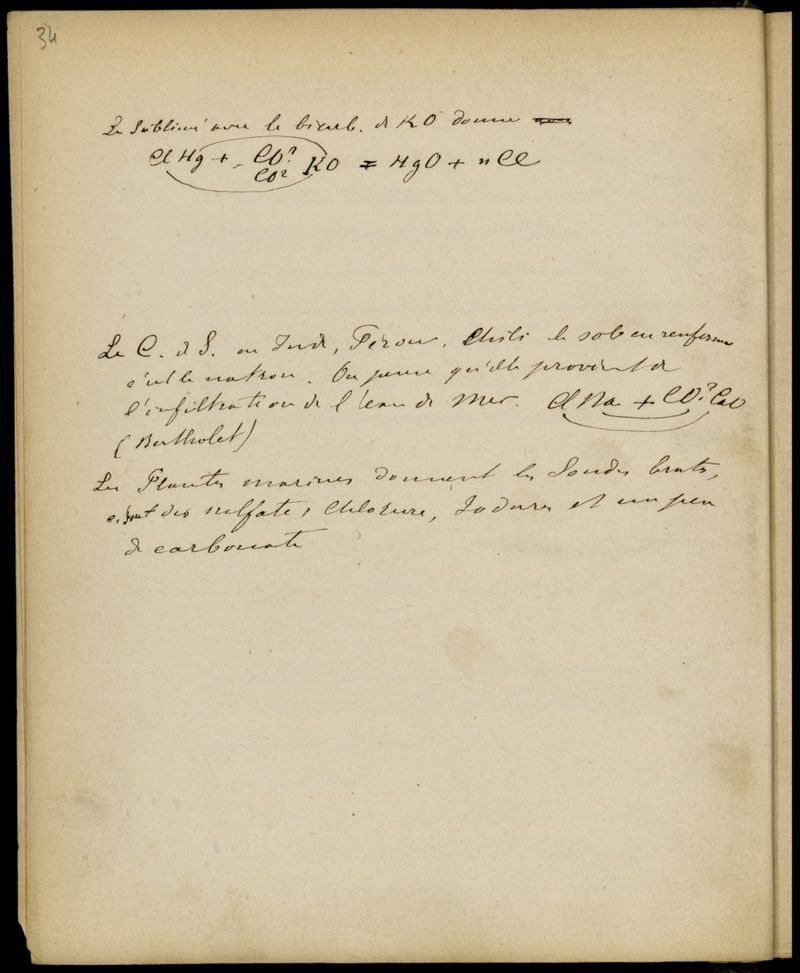 34
Le Sublimé avec le bicarb. de KO donne
ClHg + CO² KO = HgO + nCl
CO²
Le C. de S. en Inde, Pérou, Chili le sol en renferme
c'est le natron. On pense qu'elle provient de
l'infiltration de l'eau de Mer. ClNa + CO² CaO
(Bertholet)
Les Plantes marines donnent les Soudes brutes,
des sulfates, Chlorure, Iodures et un peu
de carbonate